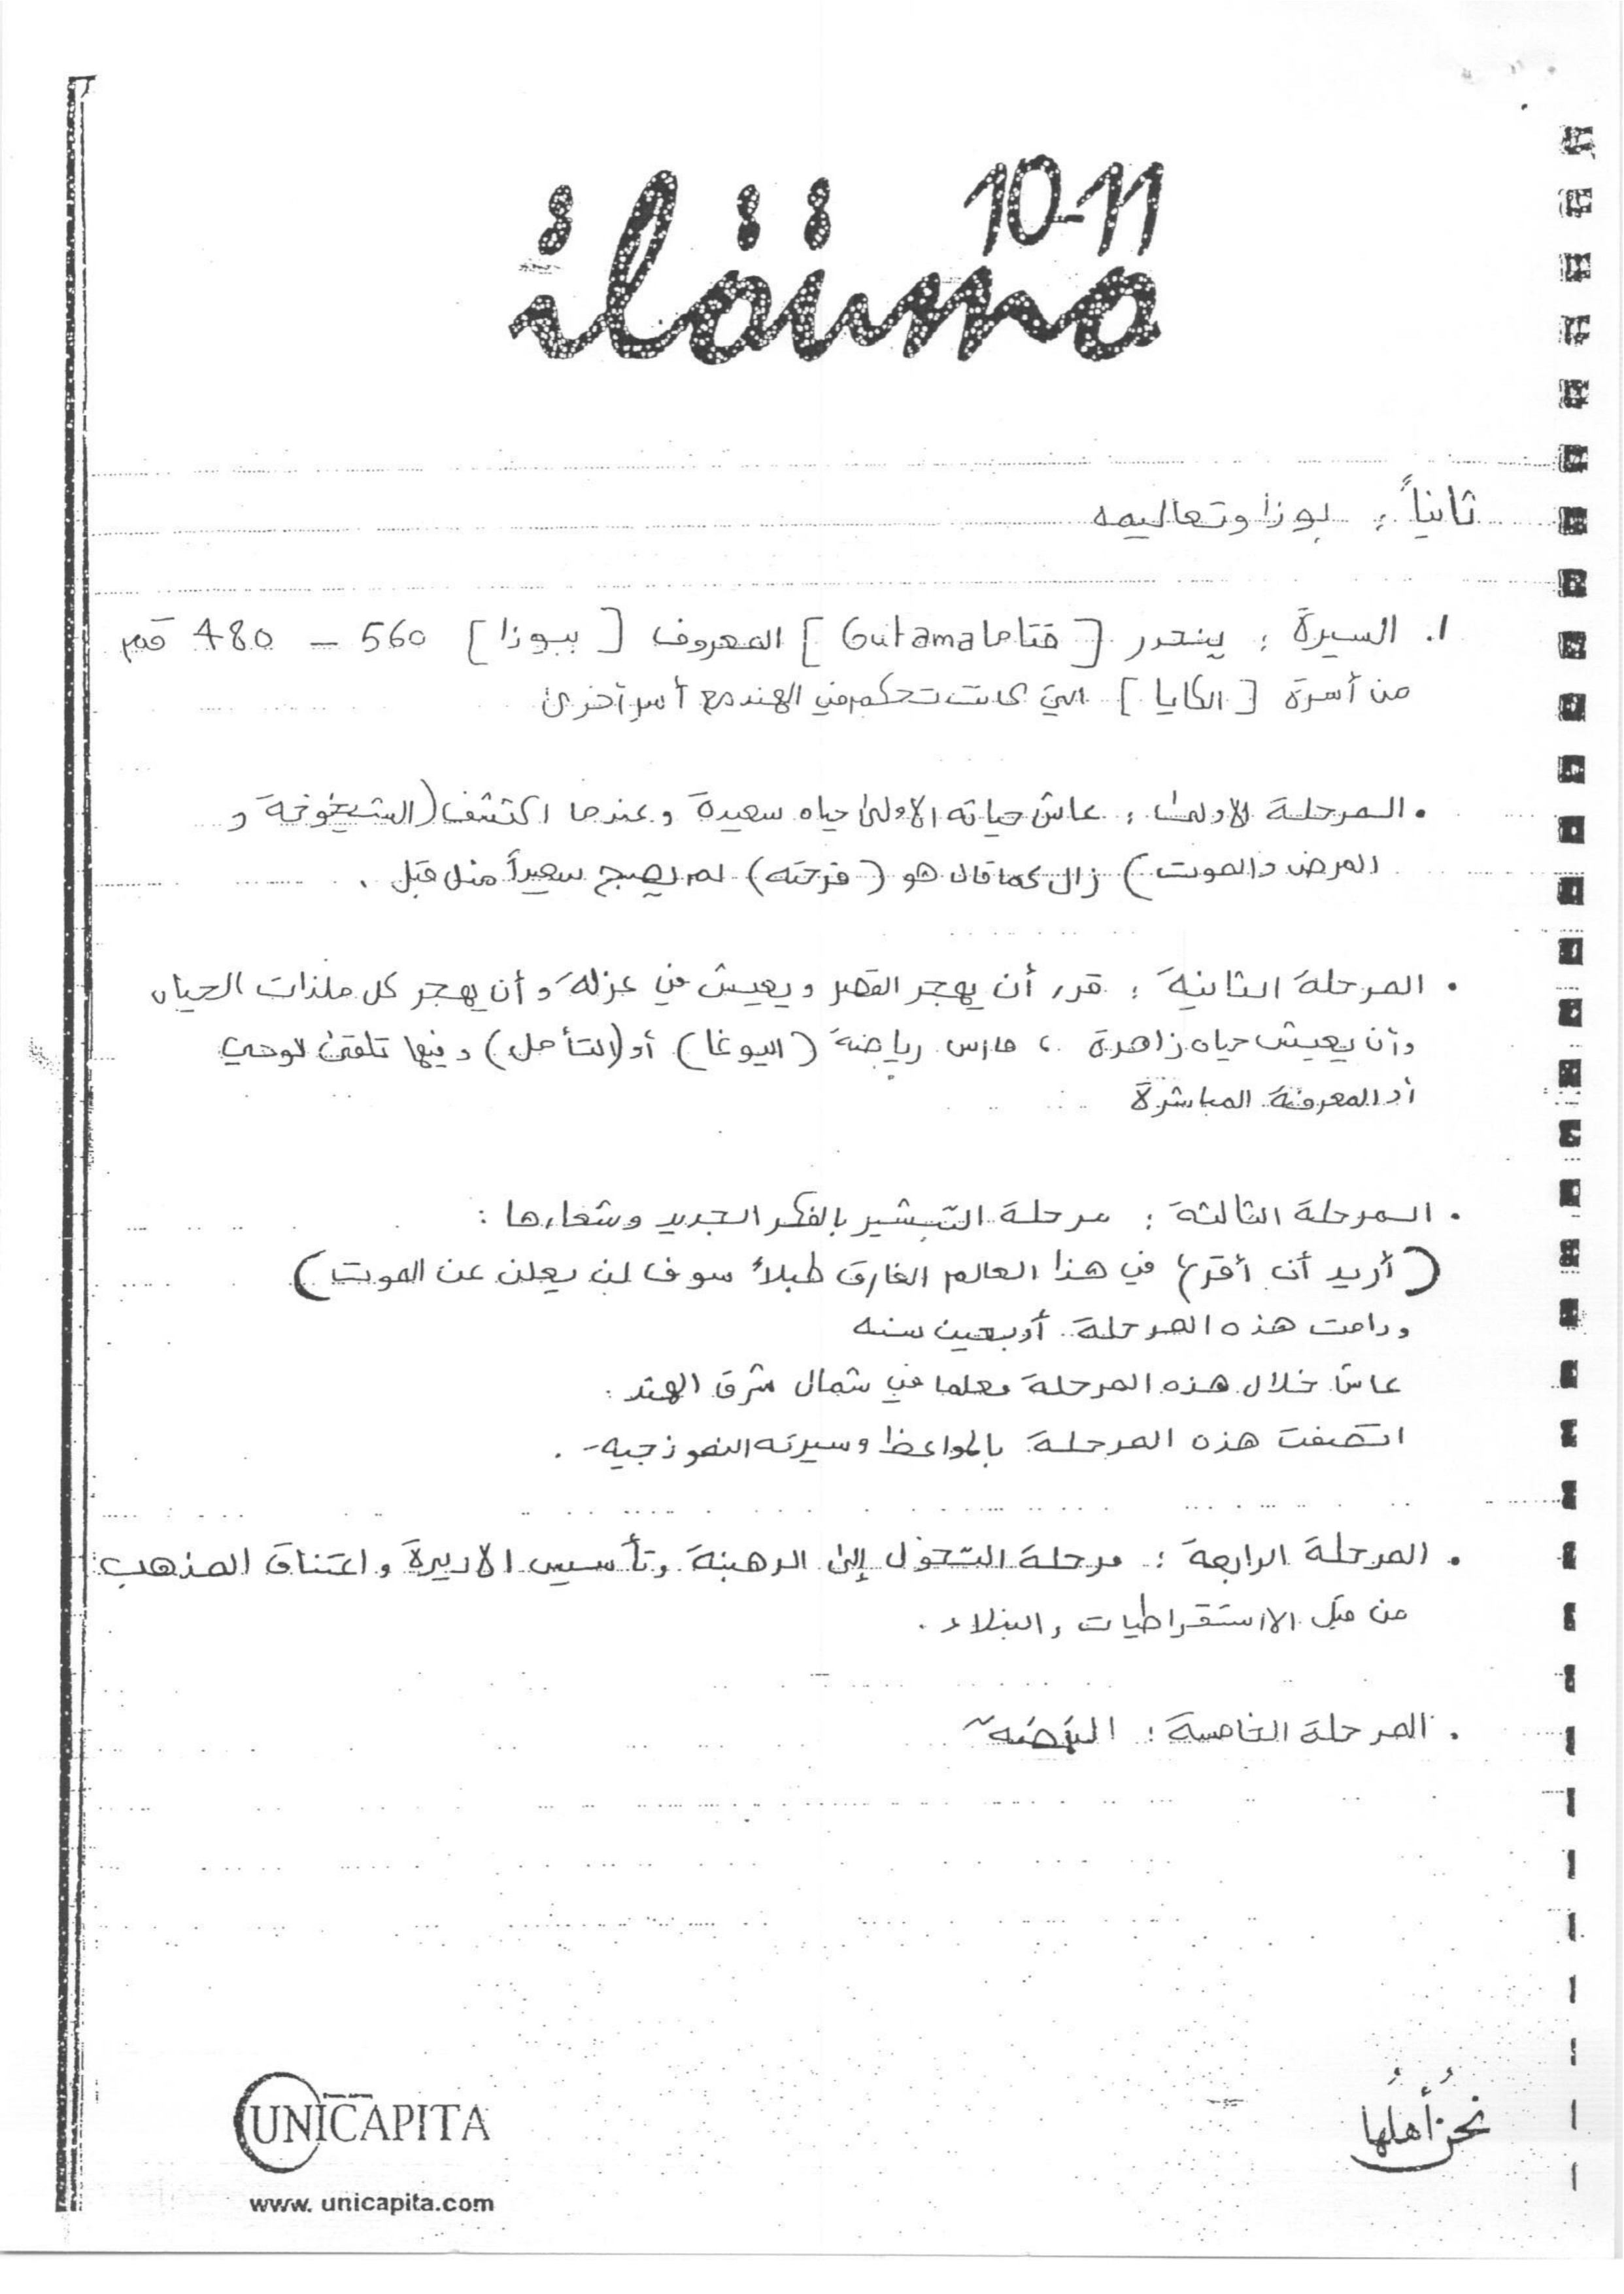 10-11
ثانياً : بوذا وتعاليمه
1. السيرة : ينحدر [ قتاما Gutama ] المعروف [ ببوذا ] 560 - 480 ق.م
من أسرة [ الكايا ] التي كانت تحكم في الهند مع أسر أخرى
• المرحلة الاولى : عاش حياته الاولى حياه سعيدة وعندما اكتشف (الشيخوخة و
المرض والموت) زال كما قال هو (فرحته) لم يصبح سعيداً مثل قبل .
• المرحلة الثانية : قرر أن يهجر القصر ويعيش في عزلة وأن يهجر كل ملذات الحياه
وأن يعيش حياه زاهدة ، مارس رياضة (اليوغا) أو (التأمل) وفيها تلقى الوحي
أو المعرفة المباشرة
• المرحلة الثالثة : مرحلة التبشير بالفكر الجديد وشعارها :
(أريد أن أقرع في هذا العالم الغارق طبلاً سوف لن يعلن عن الموت)
ودامت هذه المرحلة أربعين سنه
عاش خلال هذه المرحلة معلما في شمال شرق الهند .
اتصفت هذه المرحلة بالمواعظ وسيرته النموذجية .
• المرحلة الرابعة : مرحلة التحول إلى الرهبنة وتأسيس الاديرة واعتناق المذهب
من قبل الارستقراطيات والنبلاء .
• المرحلة الخامسة :
UNICAPITA
www. unicapita.com
نحنُ أهلُها